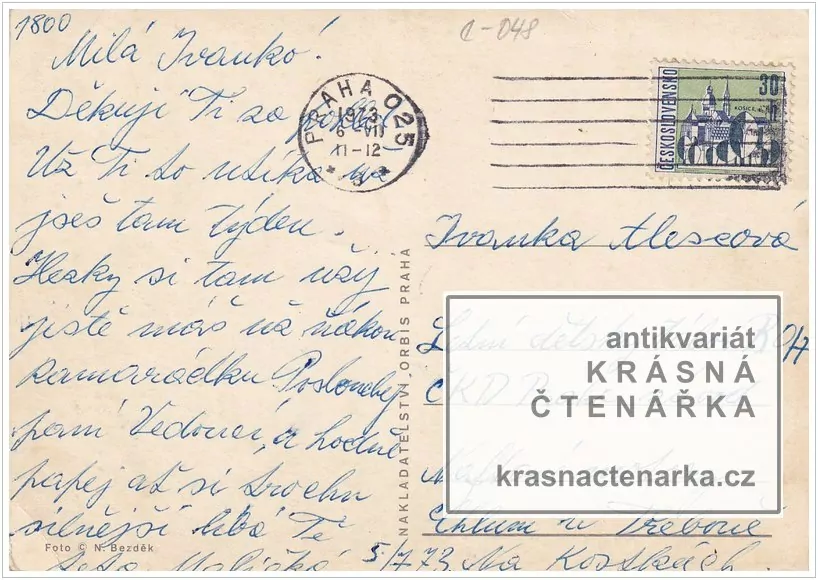 1800
C-048
Milá Ivanko!
Děkuji Ti za pohled
Už Ti to utíká už
jseš tam týden.
Hezky si tam užij
jistě máš už nákou
kamarádku Poslouchej
paní Vedoucí, a hodně
papej ať si trochu
silnější líbá Tě
teta
Foto © N. Bezděk
5/7 73
NAKLADATELSTVÍ ORBIS PRAHA
PRAHA 025
1973
6 VII
11-12
ČESKOSLOVENSKO
30 h
Ivanka Alescová
Letní dětský
ČKD
Chlum u Třeboně
Na Kostkách
antikvariát
KRÁSNÁ
ČTENÁŘKA
krasnactenarka.cz